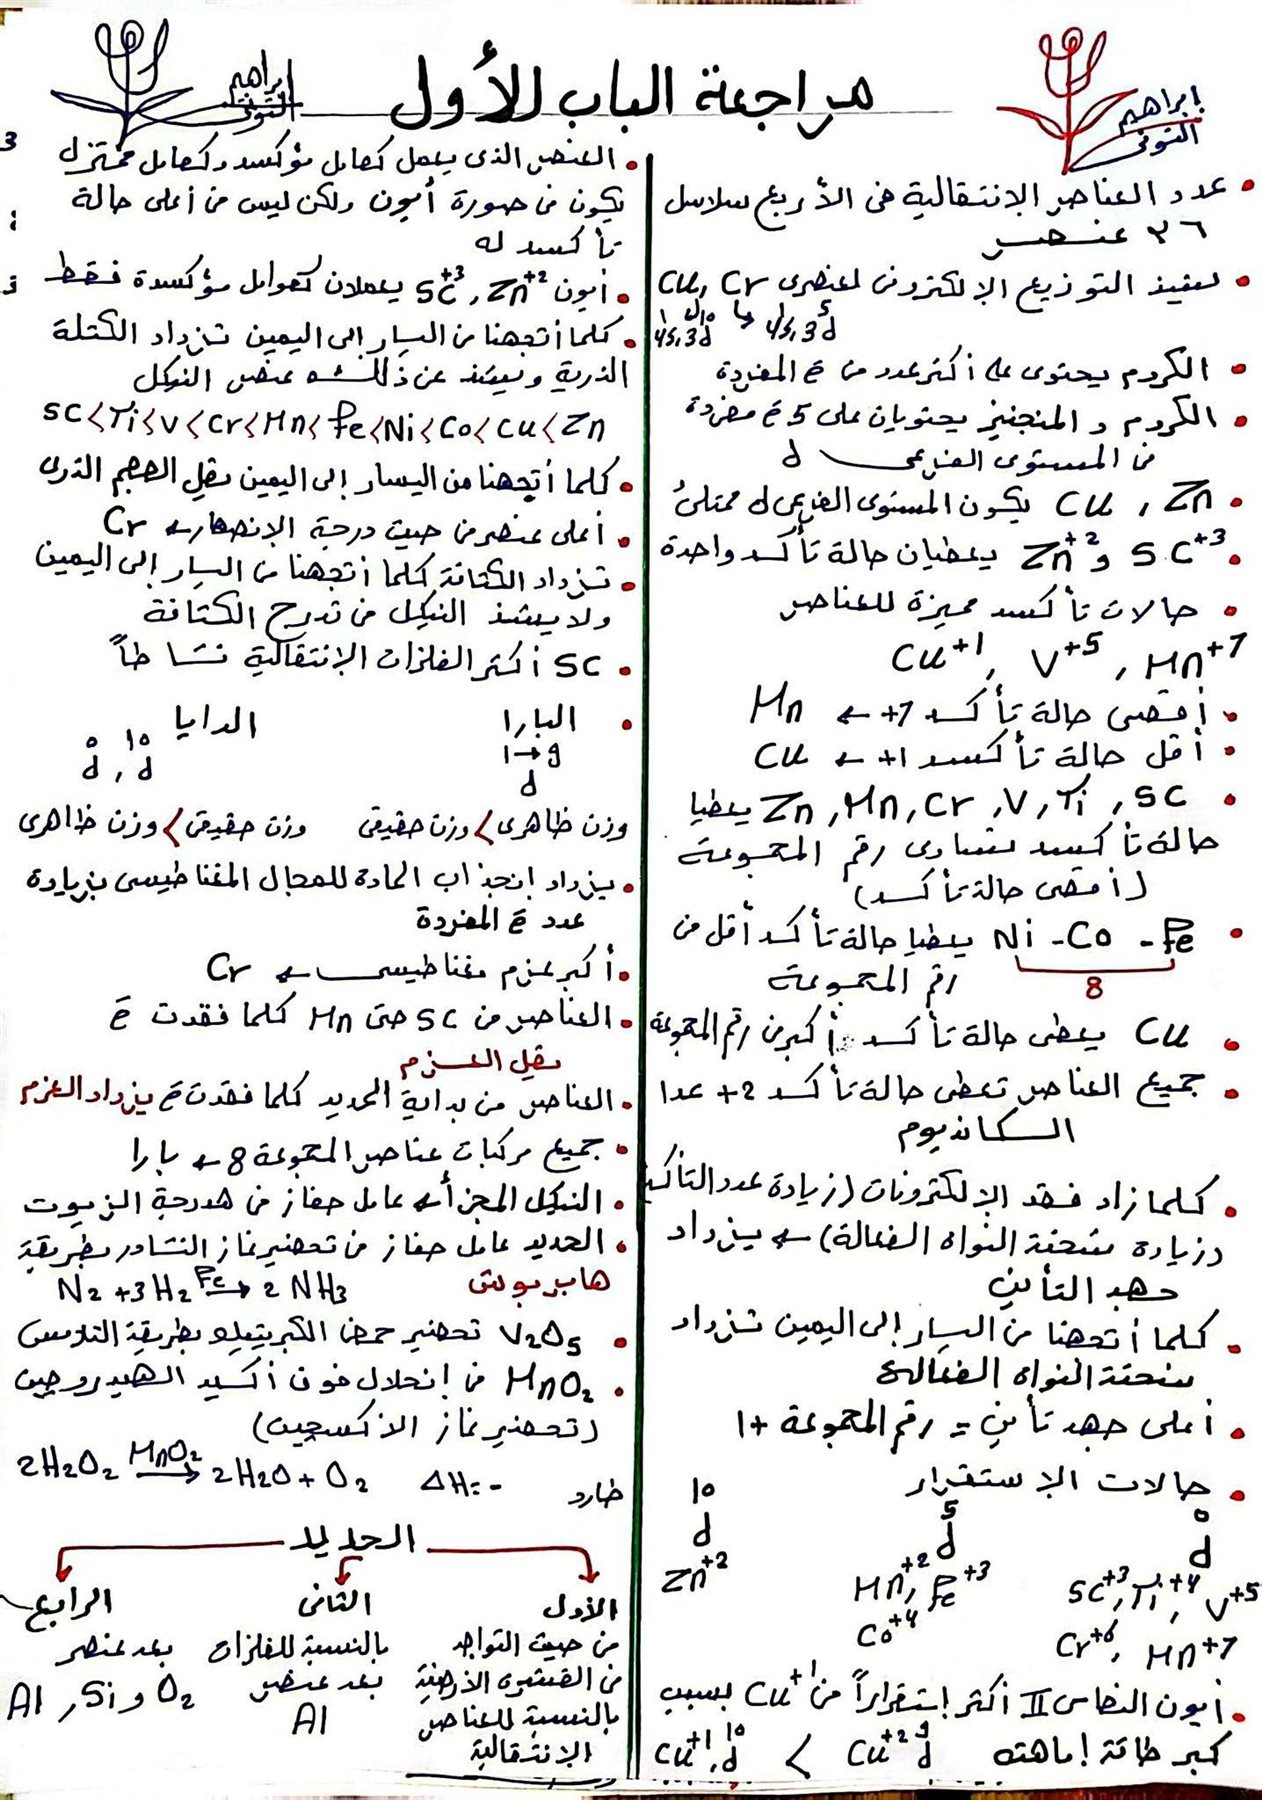 مراجعة الباب الأول
إبراهيم
التونى
إبراهيم
التونى
• عدد العناصر الإنتقالية فى الأربع سلاسل
٣٦ عنصر
• يشذ التوزيع الإلكترونى لعنصرى Cu, Cr
4s¹, 3d¹⁰ 4s¹, 3d⁵
• الكروم يحتوى على أكثر عدد من e⁻ المفردة
• الكروم و المنجنيز يحتويان على 5 e⁻ مفردة
فى المستوى الفرعى d
• Cu , Zn يكون المستوى الفرعى d ممتلئ
• Sc⁺³ و Zn⁺² يعطيان حالة تأكسد واحدة
• حالات تأكسد مميزة للعناصر
Cu⁺¹, V⁺⁵, Mn⁺⁷
• أقصى حالة تأكسد +7 ← Mn
• أقل حالة تأكسد +1 ← Cu
• Zn, Mn, Cr, V, Ti, Sc يعطيا
حالة تأكسد تساوى رقم المجموعة
(أقصى حالة تأكسد)
• Ni - Co - Fe يعطيا حالة تأكسد أقل من
8 رقم المجموعة
• Cu يعطى حالة تأكسد أكبر من رقم المجموعة
• جميع العناصر تعطى حالة تأكسد +2 عدا
السكانديوم
• كلما زاد فقد الإلكترونات (زيادة عدد التأكسد
وزيادة شحنة النواة الفعالة) ← يزداد
جهد التأين
• كلما أتجهنا من اليسار إلى اليمين تزداد
شحنة النواة الفعالة
• أعلى جهد تأين = رقم المجموعة +1
• حالات الإستقرار
d⁰ d⁵ d¹⁰
Sc⁺³, Ti⁺⁴, V⁺⁵ Mn⁺², Fe⁺³ Zn⁺²
Cr⁺⁶, Mn⁺⁷ Co⁺⁴
• أيون النحاس II أكثر إستقراراً من Cu⁺¹ بسبب
كبر طاقة إماهته Cu⁺² d⁹ > Cu⁺¹, d¹⁰
• العنصر الذى يعمل كعامل مؤكسد وكعامل مختزل
يكون فى صورة أيون ولكن ليس فى أعلى حالة
تأكسد له
• أيون Sc⁺³, Zn⁺² يعملان كعوامل مؤكسدة فقط
• كلما أتجهنا من اليسار إلى اليمين تزداد الكتلة
الذرية ويشذ عن ذلك عنصر النيكل
Sc < Ti < V < Cr < Mn < Fe < Ni < Co < Cu < Zn
• كلما أتجهنا من اليسار إلى اليمين يقل الحجم الذرى
• أعلى عنصر من حيث درجة الإنصهار ← Cr
• تزداد الكثافة كلما أتجهنا من اليسار إلى اليمين
ولا يشذ النيكل فى تدرج الكثافة
• Sc أكثر الفلزات الإنتقالية نشاطاً
• البارا الدايا
d¹→⁹ d⁰, d¹⁰
وزن ظاهرى > وزن حقيقى وزن حقيقى > وزن ظاهرى
• يزداد إنجذاب المادة للمجال المغناطيسى بزيادة
عدد e⁻ المفردة
• أكبر عزم مغناطيسى ← Cr
• العناصر من Sc حتى Mn كلما فقدت e⁻
يقل العزم
• العناصر من بداية الحديد كلما فقدت e⁻ يزداد العزم
• جميع مركبات عناصر المجموعة 8 ← بارا
• النيكل المجزأ ← عامل حفاز فى هدرجة الزيوت
• الحديد عامل حفاز فى تحضير غاز النشادر بطريقة
هابر بوش N₂ + 3H₂ Fe→ 2NH₃
• V₂O₅ تحضير حمض الكبريتيك بطريقة التلامس
• MnO₂ فى إنحلال فوق أكسيد الهيدروجين
(تحضير غاز الأكسجين)
2H₂O₂ MnO₂→ 2H₂O + O₂ ΔH = - طارد
الحديد
الأول الثانى الرابع
من حيث التواجد بالنسبة للفلزات بعد عنصر
فى القشرة الأرضية بعد عنصر Al , Si و O₂
بالنسبة للعناصر Al
الإنتقالية